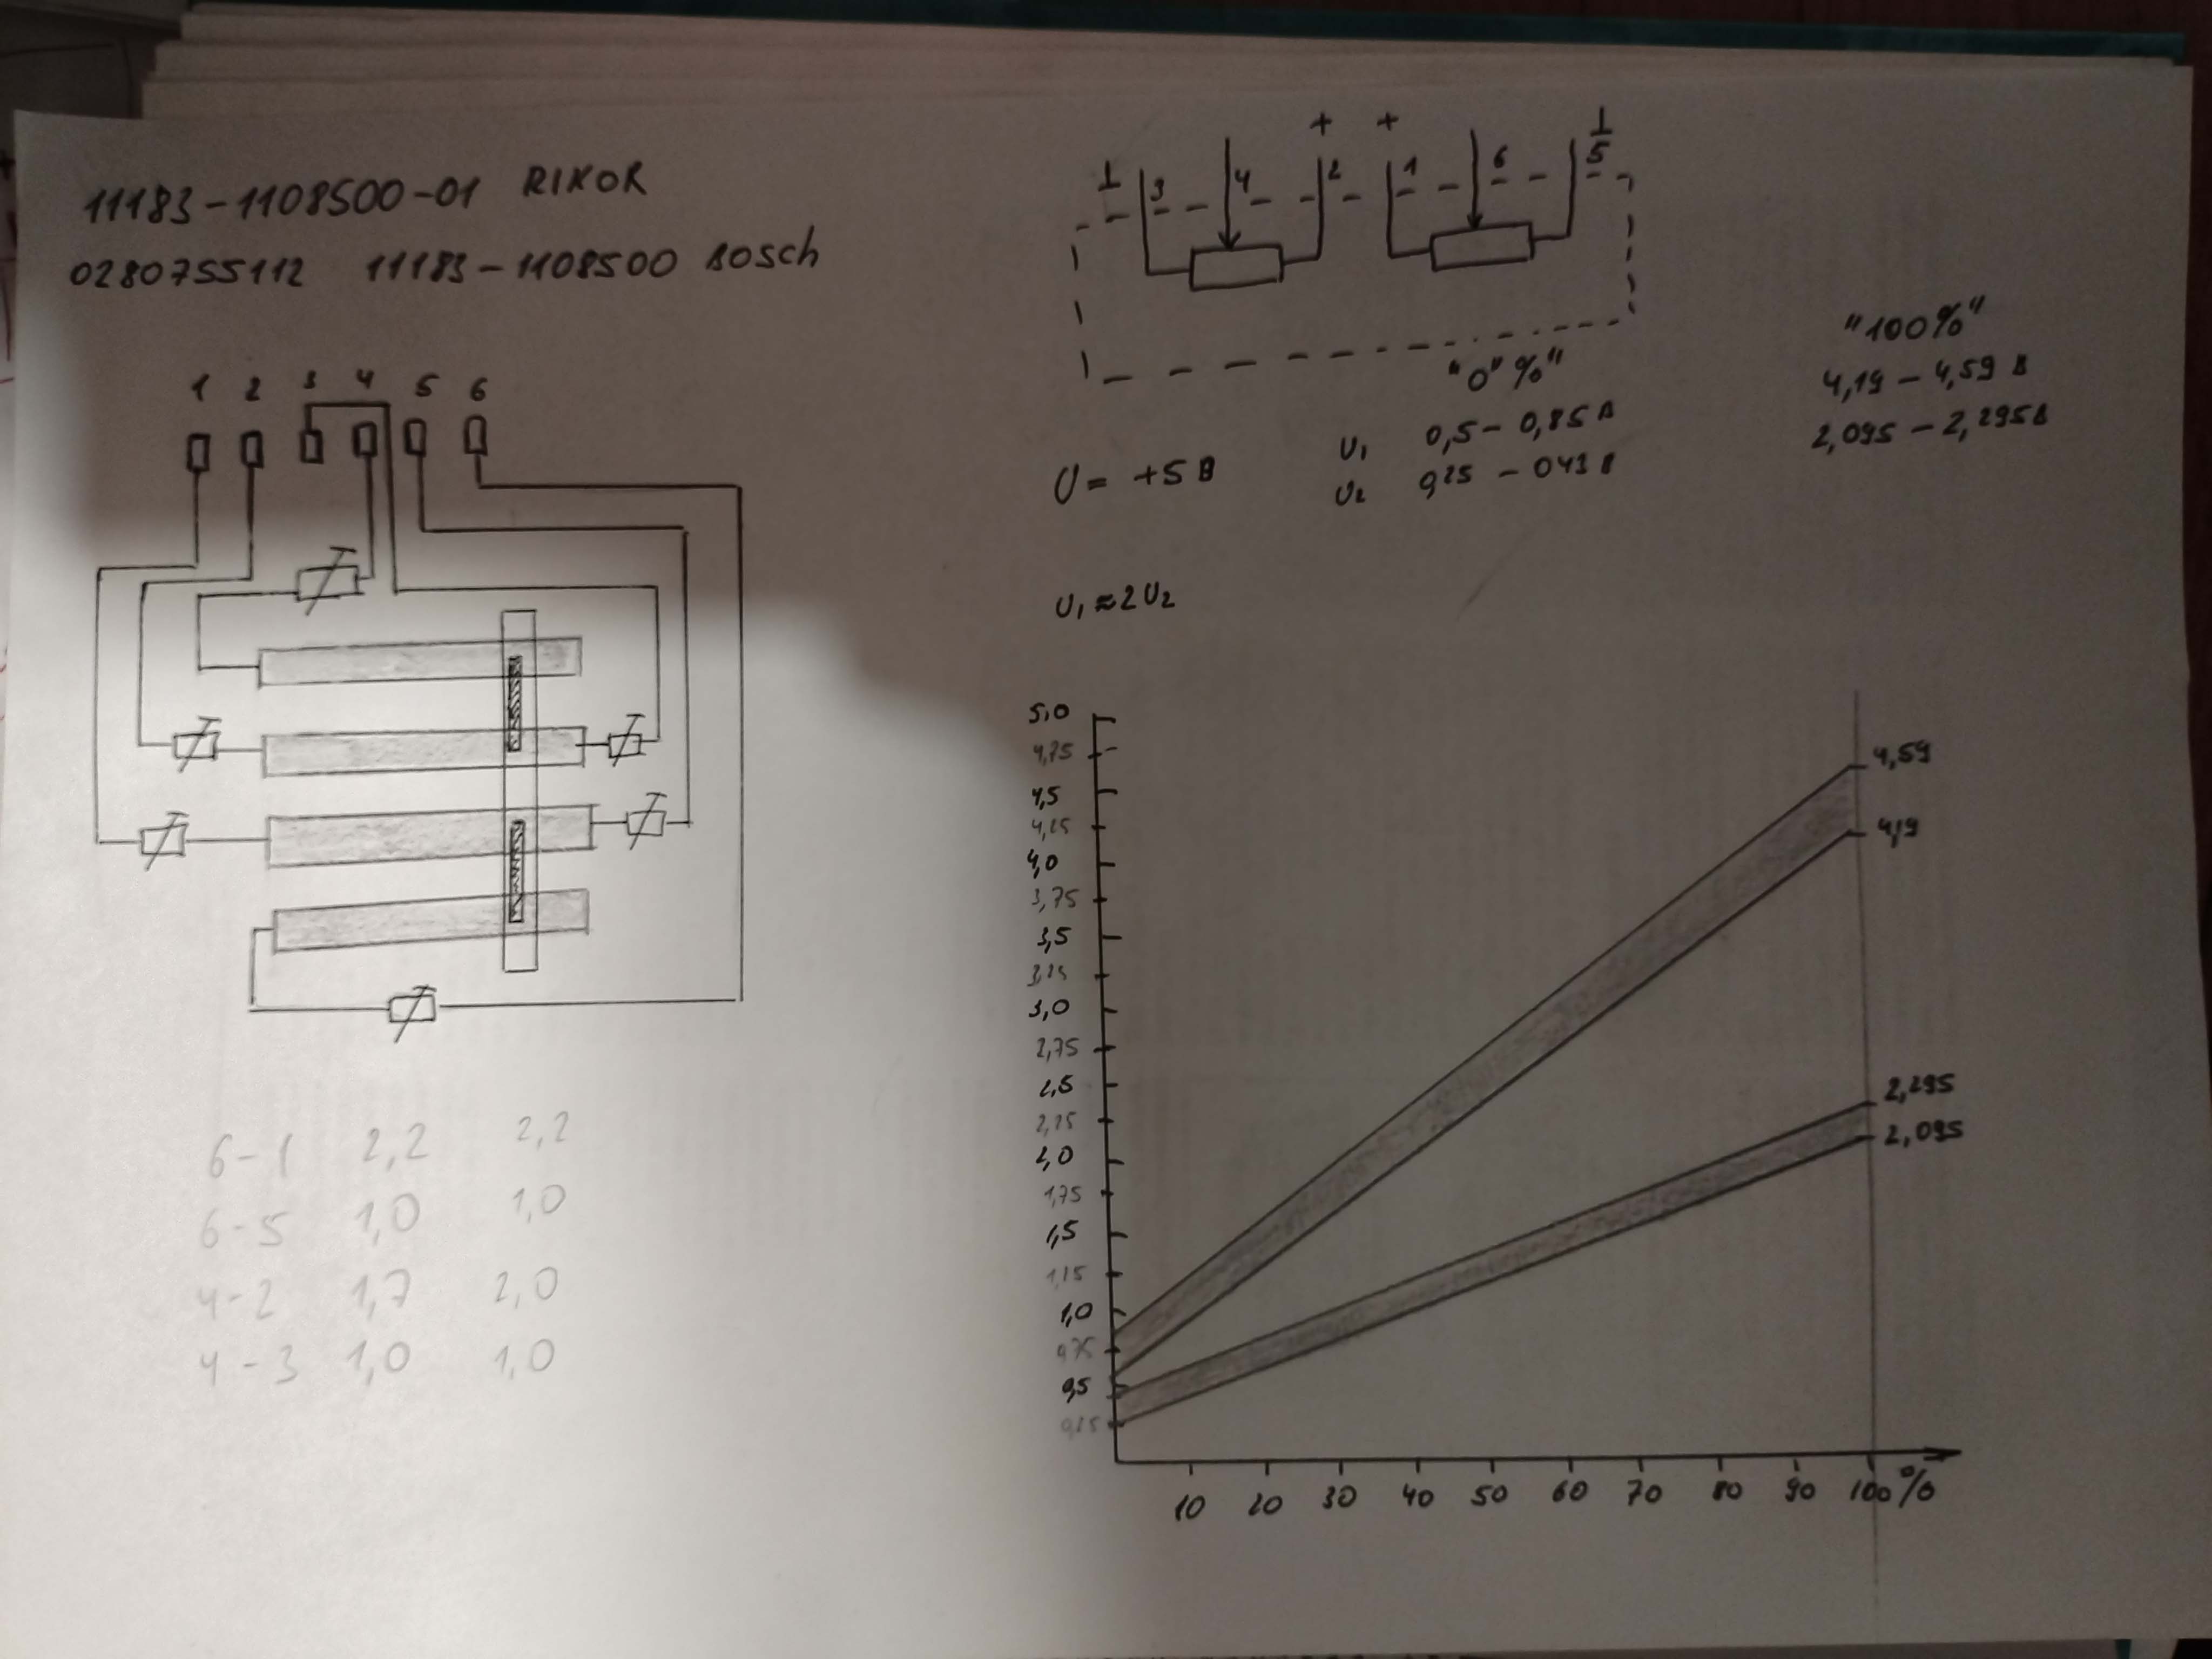 11183-1108500-01 RIKOR
0280755112 11183-1108500 BOSCH
1 2 3 4 5 6
6-1 2,2 2,2
6-5 1,0 1,0
4-2 1,7 2,0
4-3 1,0 1,0
+ +
⊥ 3 4 2 1 6 5 ⊥
"0"%" "100%"
U= +5В
U1 0,5-0,85В 4,19-4,59В
U2 0,25-0,43В 2,095-2,295В
U1≈2U2
5,0
4,75
4,5
4,25
4,0
3,75
3,5
3,25
3,0
2,75
2,5
2,25
2,0
1,75
1,5
1,25
1,0
0,75
0,5
0,25
4,59
4,19
2,295
2,095
10 20 30 40 50 60 70 80 90 100%